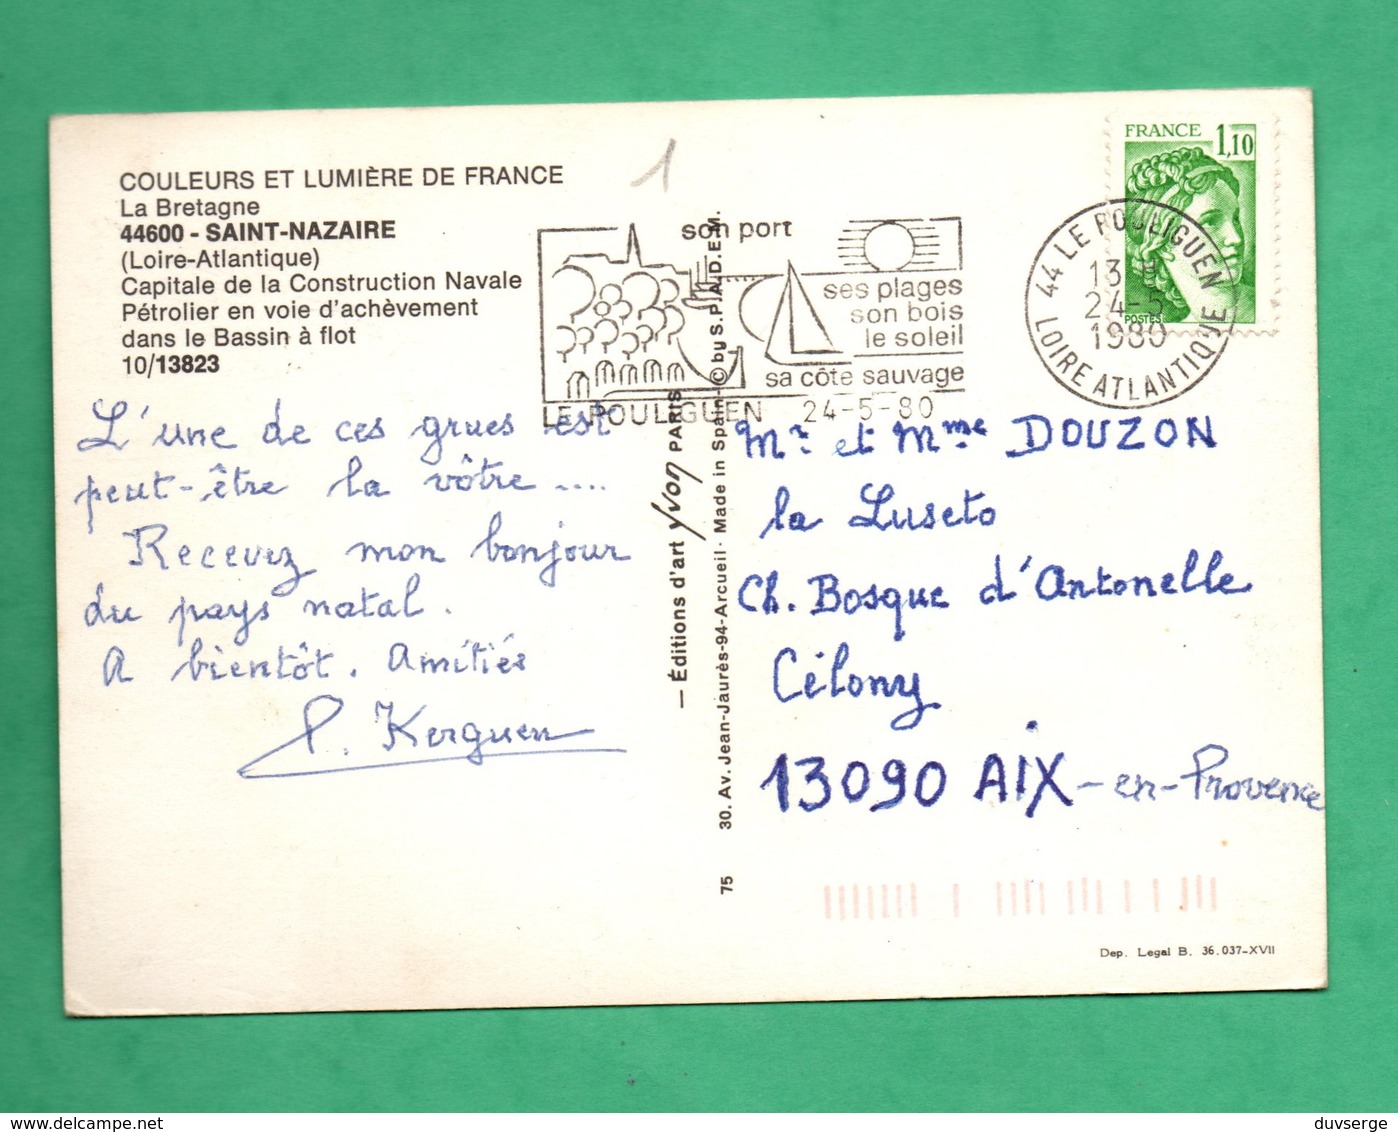 COULEURS ET LUMIÈRE DE FRANCE
La Bretagne
44600 - SAINT-NAZAIRE
(Loire-Atlantique)
Capitale de la Construction Navale
Pétrolier en voie d'achèvement
dans le Bassin à flot
10/13823
1
son port
ses plages
son bois
le soleil
sa côte sauvage
LE POULIGUEN 24-5-80
FRANCE 1,10
POSTES
44 LE POULIGUEN
13
24-5
1980
LOIRE ATLANTIQUE
L'une de ces grues est
peut-être la vôtre ....
Recevez mon bonjour
du pays natal.
A bientôt. Amitiés
P. Kerguen
— Éditions d'art Yvon PARIS
30. Av. Jean-Jaurès-94-Arcueil - Made in Spain - © by S.P.A.D.E.M.
75
Mr. et Mme DOUZON
la Luseto
Ch. Bosque d'Antonelle
Célony
13090 AIX-en-Provence
Dep. Legal B. 36.037-XVII
duvserge